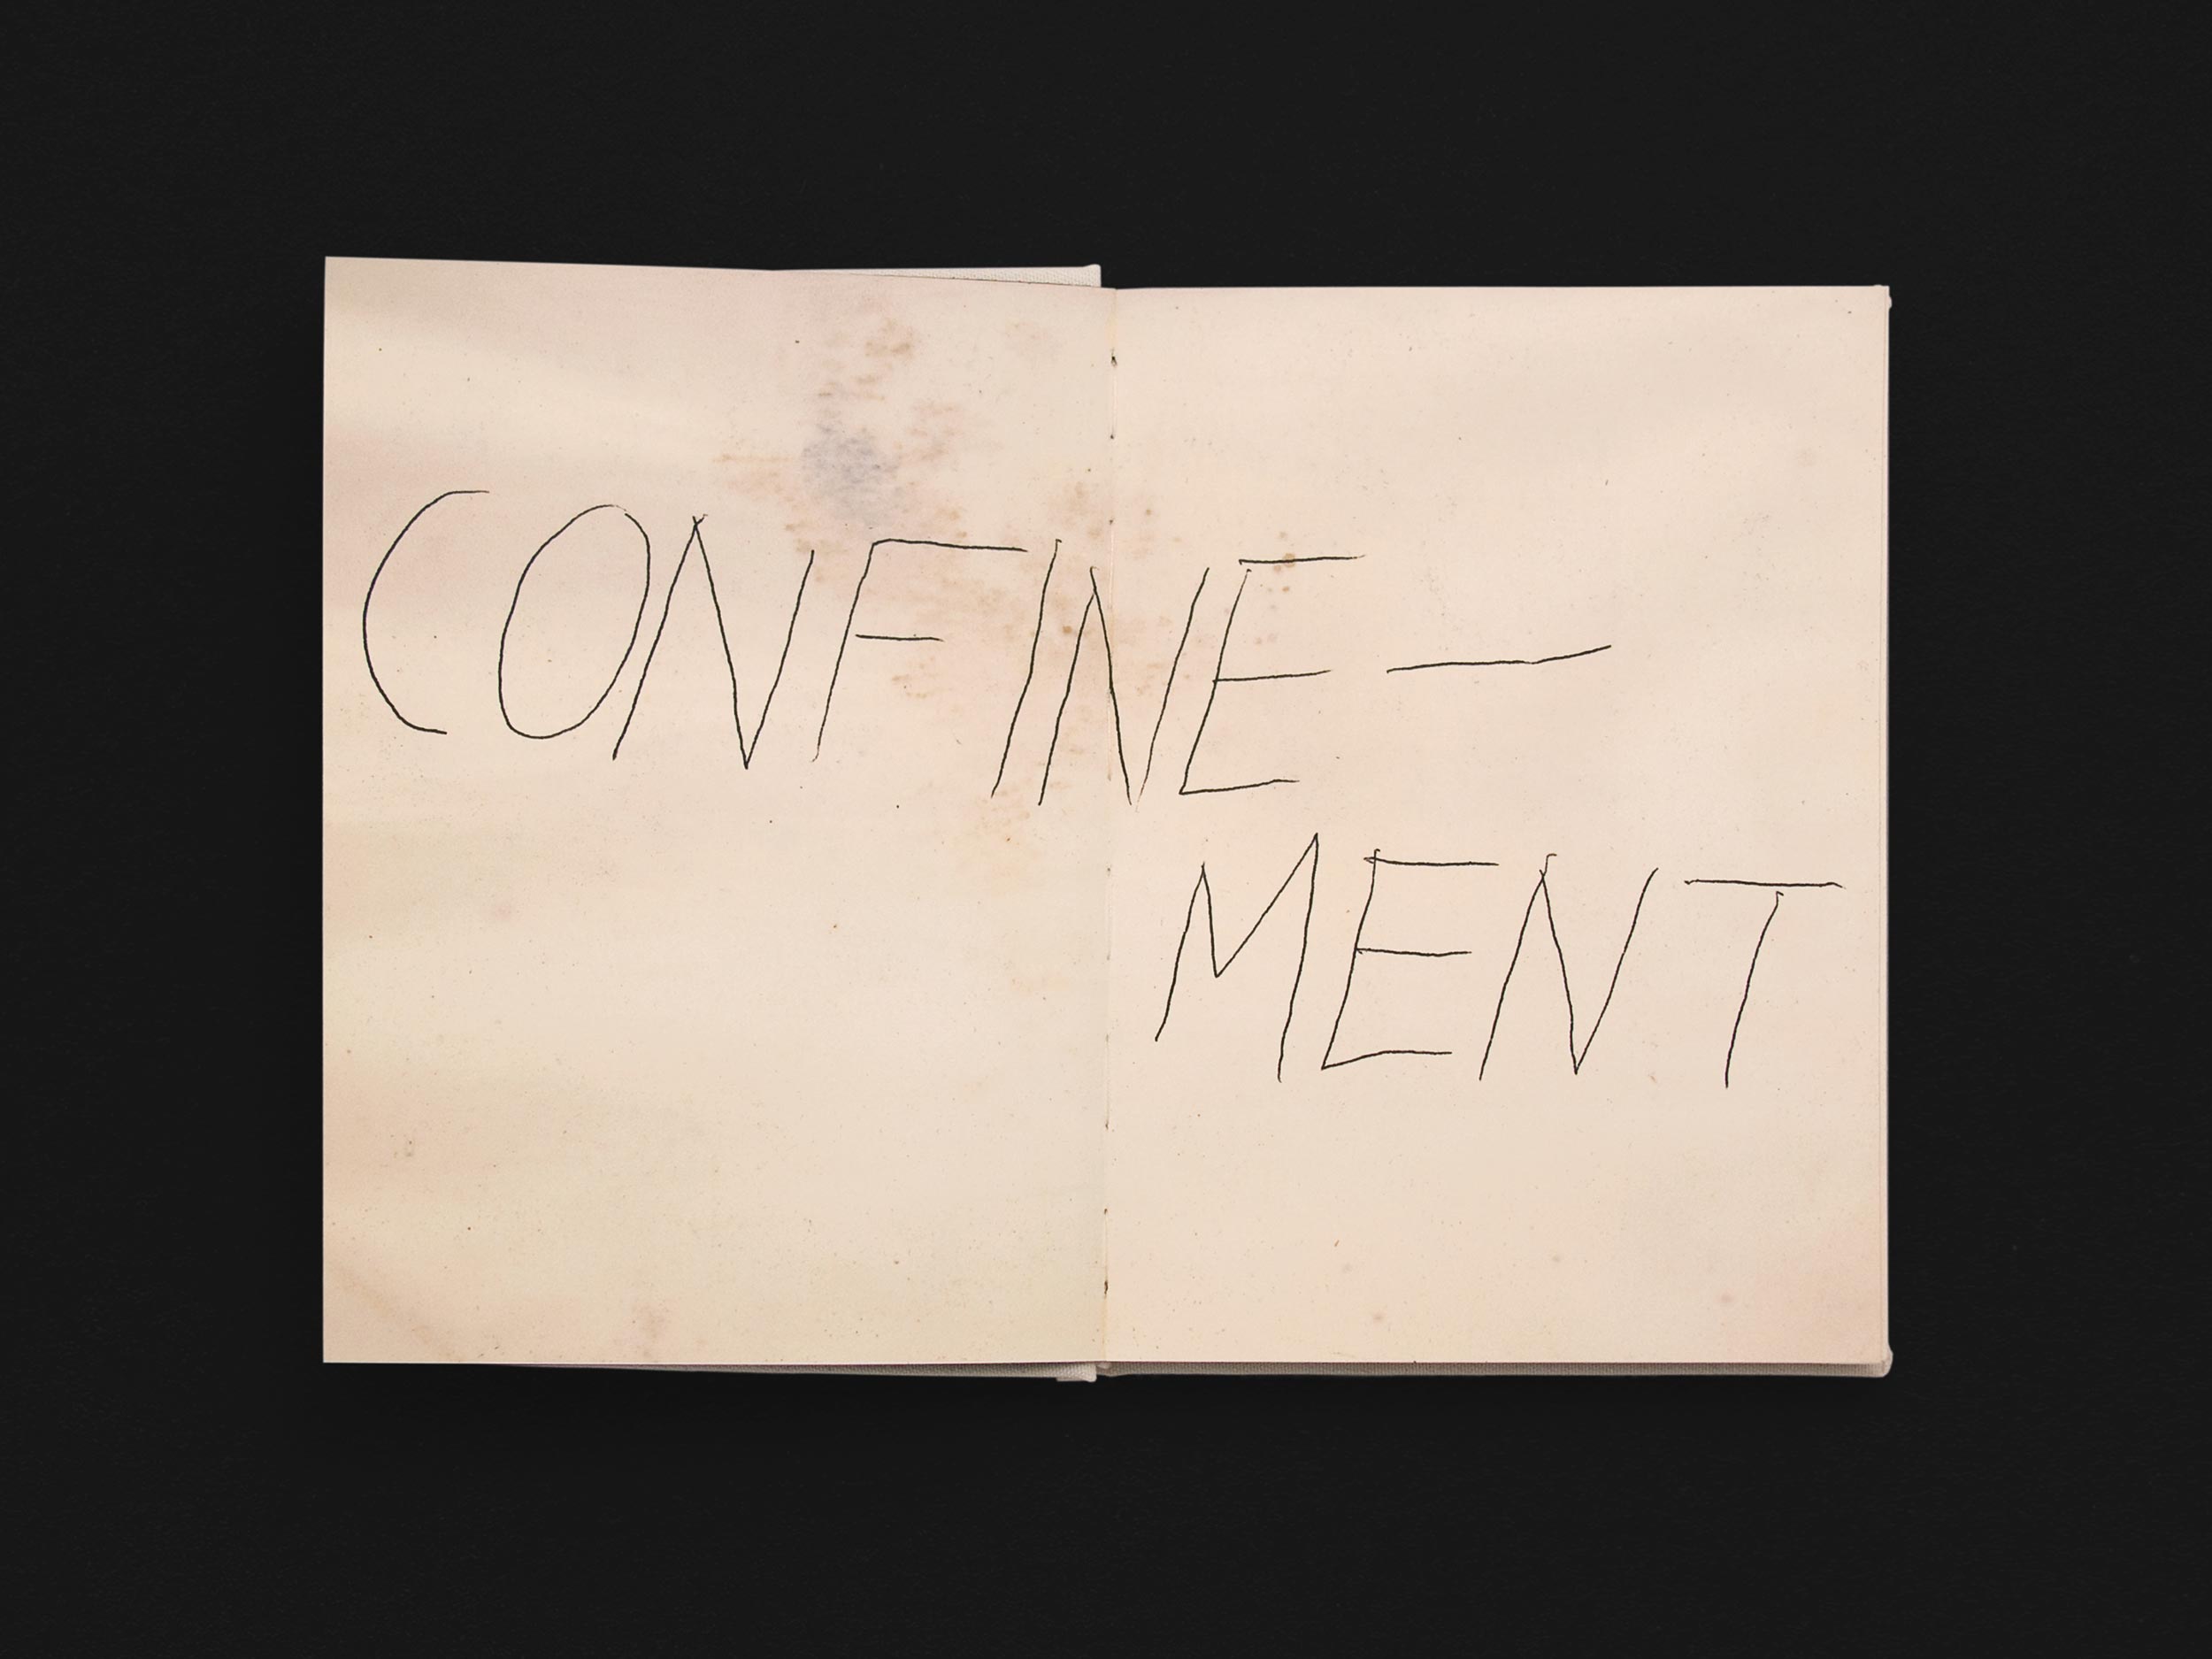 CONFINE—
MENT